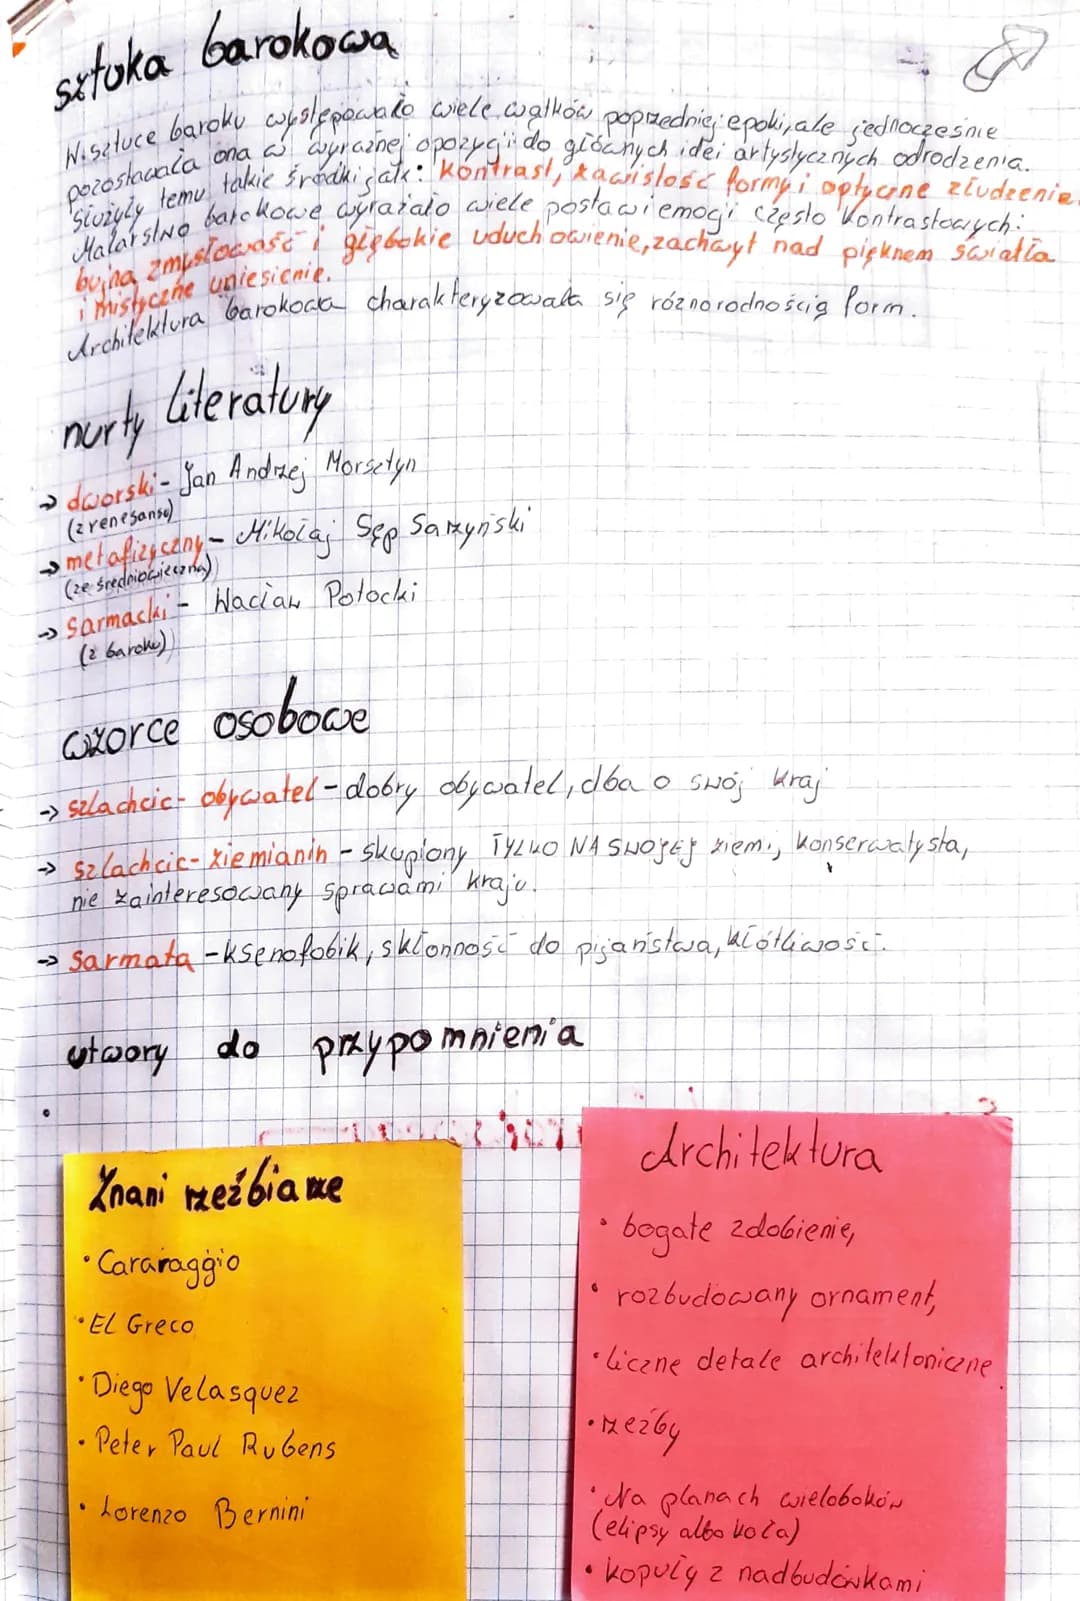 sztuka barokowa
W sztuce baroku występowało wiele wątków poprzedniej epoki, ale jednocześnie
pozostawała ona w wyraźnej opozycji do głównych idei artystycznych odrodzenia.
Służyły temu takie środki jak: kontrast, zawisłość formy i optyczne złudzenie.
Malarstwo barokowe wyrażało wiele postaw i emocji często kontrastowych:
bujną zmysłowość i głębokie uduchowienie, zachwyt nad pięknem światła
i mistyczne uniesienie.
Architektura barokowa charakteryzowała się różnorodnością form.
nurty literatury
→ dworski - Jan Andrzej Morsztyn
(z renesansu)
→ metafizyczny - Mikołaj Sęp Sarzyński
(ze średniowiecza)
→ sarmacki - Wacław Potocki
(z baroku)
wzorce osobowe
→ szlachcic - obywatel - dobry obywatel, dba o swój kraj
→ szlachcic - ziemianin - skupiony TYLKO NA SWOJEJ ziemi, konserwatysta,
nie zainteresowany sprawami kraju.
→ Sarmata - ksenofobik, skłonność do pijaństwa, kłótliwość.
utwory do przypomnienia
Znani rzeźbiarze
• Cararaggio
• El Greco
• Diego Velasquez
• Peter Paul Rubens
• Lorenzo Bernini
Architektura
• bogate zdobienie,
• rozbudowany ornament,
• liczne detale architektoniczne
• rzeźby
• Na planach wieloboków
(elipsy albo koła)
• kopuły z nadbudówkami